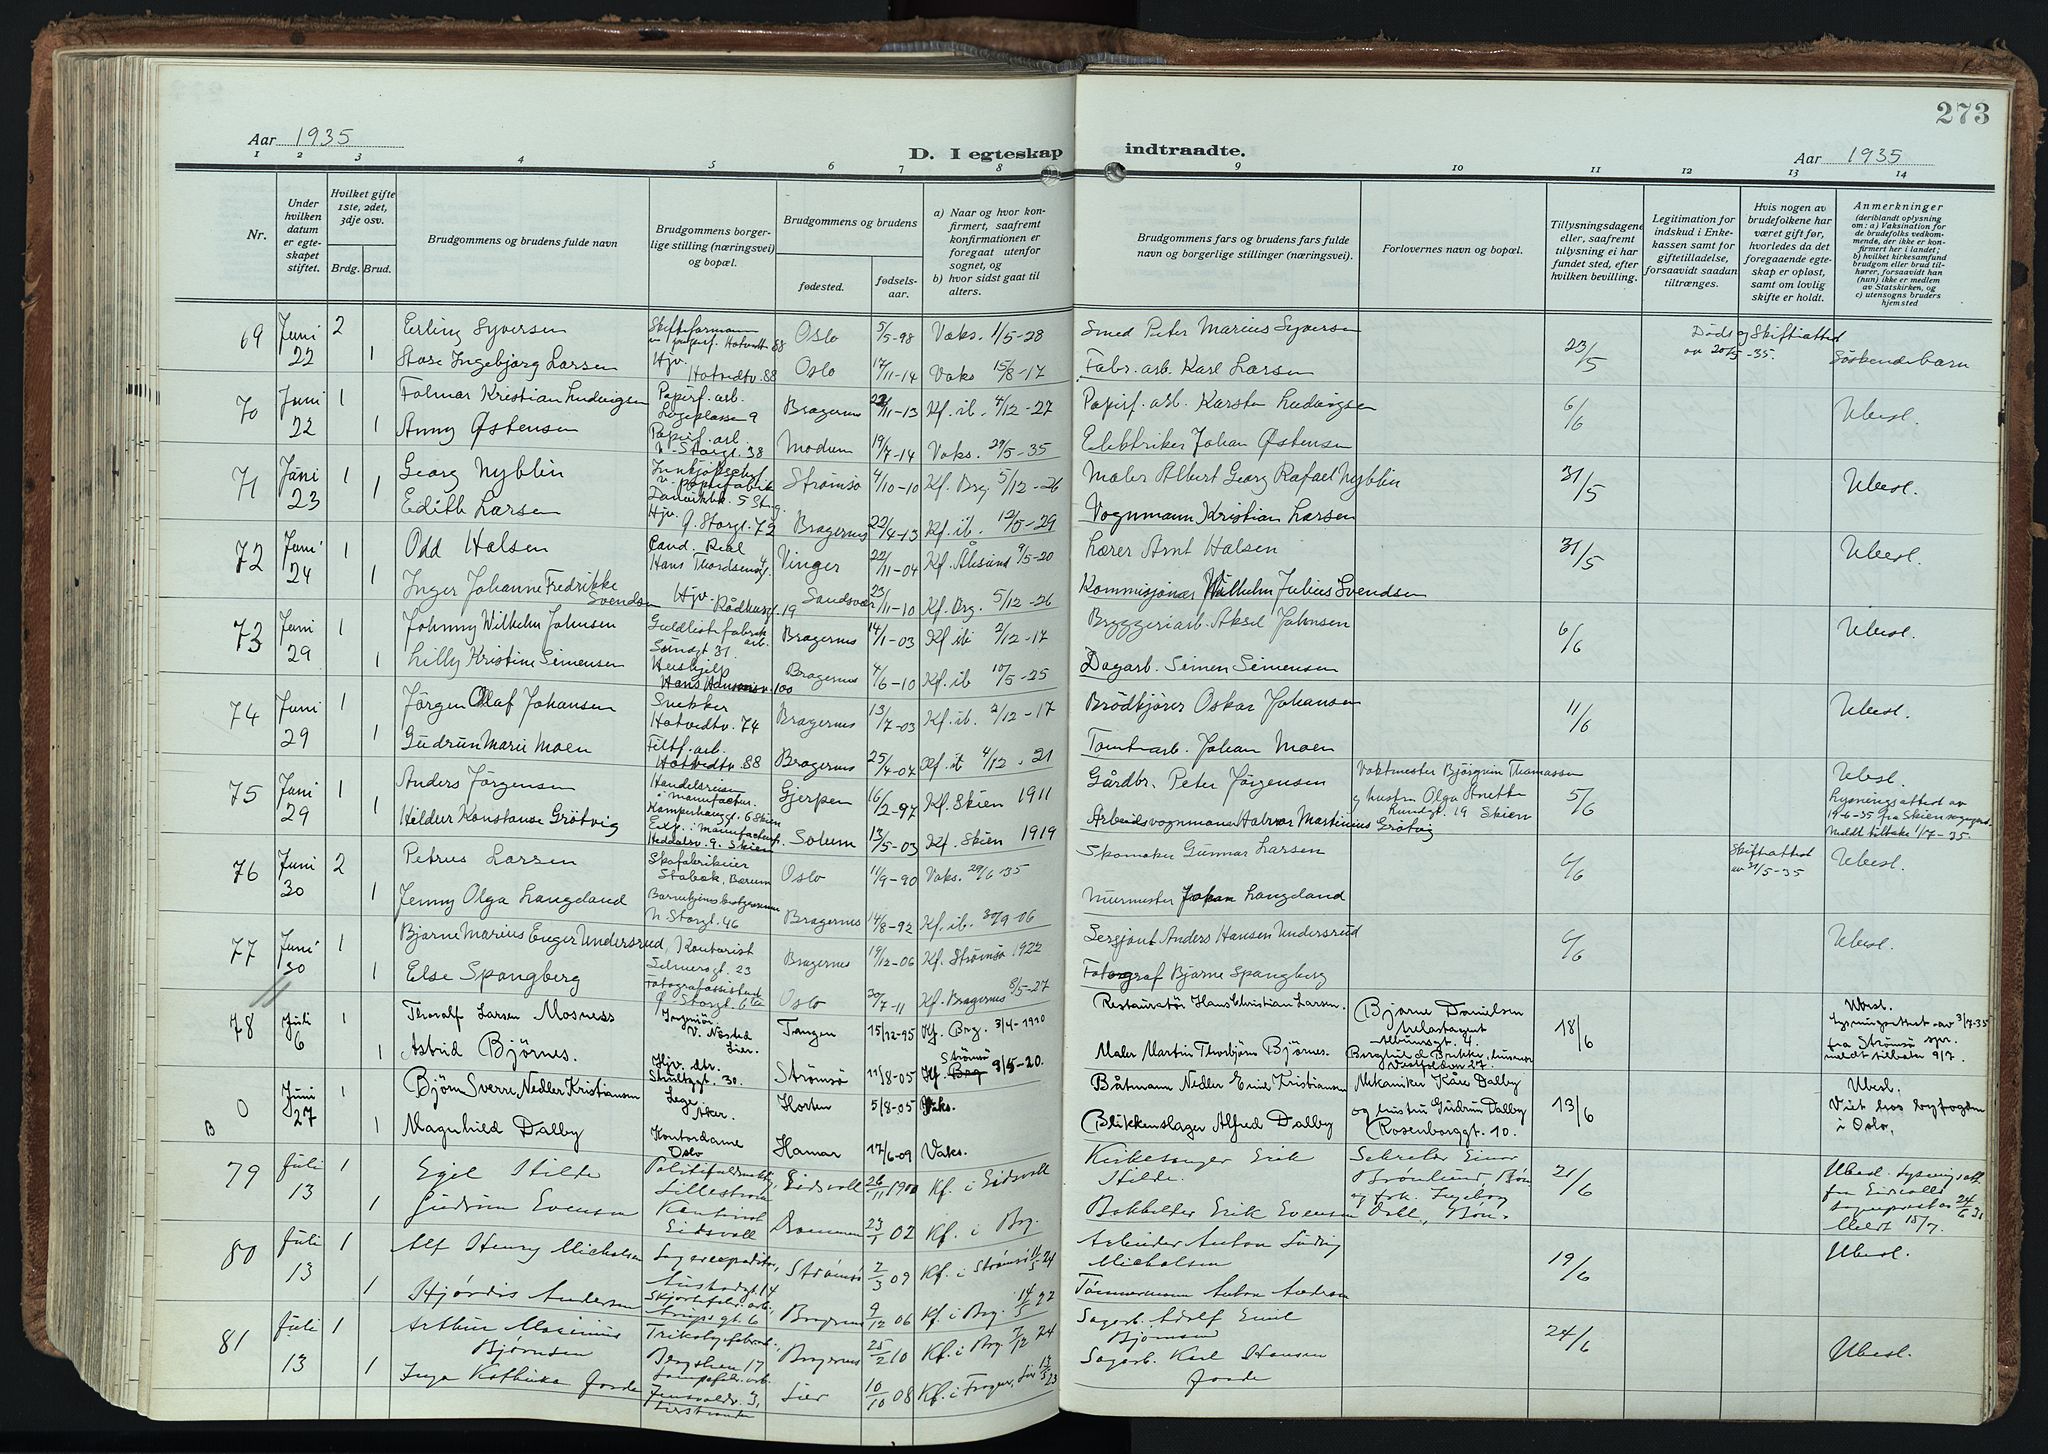 273
Aar 1935
D. I egteskap indtraadte.
Aar 1935
1 2 3 4 5 6 7 8 9 10 11 12 13 14
Nr.
Under hvilken datum er egteskapet stiftet.
Hvilket gifte 1ste, 2det, 3dje osv.
Brdg. Brud.
Brudgommens og brudens fulde navn
Brudgommens borgerlige stilling (næringsvei) og bopæl.
Brudgommens og brudens
fødested.
fødselsaar.
a) Naar og hvor konfirmert, saafremt konfirmationen er foregaat utenfor sognet, og
b) hvor sidst gaat til alters.
Brudgommens fars og brudens fars fulde navn og borgerlige stillinger (næringsvei).
Forlovernes navn og bopæl.
Tillysningsdagene eller, saafremt tillysning ei har fundet sted, efter hvilken bevilling.
Legitimation for indskud i Enkekassen samt for giftetilladelse, forsaavidt saadan tiltrænges.
Hvis nogen av brudefolkene har været gift før, hvorledes da det foregaaende egteskap er opløst, samt om lovlig skifte er holdt.
Anmerkninger
(deriblandt oplysning om: a) Vaksination for de brudefolks vedkommende, der ikke er konfirmert her i landet; b) hvilket kirkesamfund brudgom eller brud tilhører, forsaavidt han (hun) ikke er medlem av Statskirken, og c) utensogns bruders hjemsted
69 Juni 22 2 Erling Syversen Oslo 5/5-98 Vaks. 1/5-28 Smed Peter Marius Syversen 23/5 Skifteattest av 20/5-35. Söskendebarn
1 Ingebjørg Larsen Hjv. Hotvedtv. 88 Oslo 17/11-14 Vaks 15/8-17 Fabr. arb. Karl Larsen
70 Juni 22 1 Folmar Kristian Ludvigsen Papirf. arb. Bragernes 22/11-13 Kf. ib. 4/12-27 Papirf. arb. Karsten Ludvigsen 6/6 Ubesl.
1 Anny Østensen Papirf. arb. N. Storgt. 38 Modum 19/7-14 Vaks. 29/5-35 Elektriker Johan Østensen
71 Juni 23 1 Georg Nyblin Strømsø 4/10-10 Kf. Brg. 5/12-26 Maler Albert Georg Rafael Nyblin 31/5 Ubesl.
1 Edith Larsen Hjv. Ø. Storgt. 72 Bragernes 22/4-13 Kf. ib. 12/5-29 Vognmann Kristian Larsen
72 Juni 24 1 Odd Halsen Cand. Real Hans Thordsensgt. Vinger 22/11-04 Kf. Ålesund 9/5-20 Lærer Arnt Halsen 31/5 Ubesl.
1 Inger Johanne Fredrikke Svendsen Hjv. Rådhusgt. 19 Sandsvær 23/11-10 Kf. Brg. 5/12-26 Kommisjonær Wilhelm Julius Svendsen
73 Juni 29 1 Johnny Wilhelm Johnsen Guldlistefabrik arb. Bragernes 14/1-03 Kf. ib 2/12-17 Bryggeriarb. Aksel Johnsen 6/6 Ubesl.
1 Lilly Kristine Simensen Hushjelp 100 Bragernes 4/6-10 Kf. ib 10/5-25 Dagarb. Simen Simensen
74 Juni 29 1 Jörgen Olaf Johansen Snekker Hotvedtv. 74 Bragernes 13/7-03 Kf. ib. 2/12-17 Brödkjörer Oskar Johansen 11/6 Ubesl.
1 Gudrun Marie Moen Filtf. arb. Hotvedtv. 88 Bragernes 25/4-04 Kf. ib 4/12-21 Tomtearb. Johan Moen
75 Juni 29 1 Anders Jörgensen Handelsreisen i manufactur. 6 Skien Gjerpen 16/2-97 Kf. Skien 1911 Gårdbr. Peter Jörgensen Vaktmester Björgum Thomassen og hustru Olga Anette Lundgt. 19 Skien 5/6 Ubesl.
1 Hildur Konstanse Grötvig Exp. i manufactur Heddalsv. 9. Skien Solum 13/5-03 Kf. Skien 1919 Arbeidsvognmann Halvor Martinius Grötvig Lysningsattest av 19-6-35 fra Skien sogneprest. Meldt tilbake 1/7-35.
76 Juni 30 2 Petrus Larsen Skofabrikeier Stabæk, Bærum Oslo 11/9-90 Vaks. 29/6 35 Skomaker Gunnar Larsen 6/6 Skifteattest av 21/5-35 Ubesl.
1 Jenny Olga Langeland N Storgt. 46 Bragernes 14/8-92 Kf. ib. 30/9-06 Murmester Johan Langeland
77 Juni 30 1 Bjarne Marius Enger Undersrud Kontorist Selmersgt. 23 Bragernes 19/12-06 Kf. Strømsø 1922 Sersjant Anders Hansen Undersrud 6/6 Ubesl.
1 Else Spangberg Fotografassistent Ø Storgt. 6 Oslo 30/7-11 Kf. Bragernes 8/5-27 Fotograf Bjarne Spangberg
78 Juli 6 1 Thoralf Larsen Mosness V. Nøsted Lier. Tangen 15/12-95 Kf. Brg. 3/4-1910 Restauratør Hans Christian Larsen. Bjarne Danielsen 4. 18/6 Ubesl. Lysningsattest av 3/7-35 fra Strømsø spr. meldt tilbake 9/7.
1 Astrid Bjørnes. Hjv. dtr. 30. Strømsø 11/8-05 Kf. Strømsø Brg 9/5-20. Maler Martin Thorbjørn Bjørnes. 27.
B 0 Juni 27 1 Bjørn Sverre Nedler Kristiansen Lege Aker. Horten 5/8-05 Vaks. Båtmann Nedler Emil Kristiansen Mekaniker Kåre Dalby 13/6 Ubesl.
1 Magnhild Dalby Kontordame Oslo Hamar 17/6-09 Vaks. Blikkenslager Alfred Dalby og hustru Gudrun Dalby Rosenborggt. 10. Viet hos byfogden i Oslo.
79 Juli 13 1 Egil Hilde Lillestrøm Eidsvoll 26/11 1900 Kf. i Eidsvoll Kirkesanger Erik Hilde. Sekretær Einar 21/6 Ubesl. Lysningsatt. fra Eidsvoll sogneprest av 24/6 35
1 Gudrun Evensen Kontorist Eidsvoll Drammen 23/1 02 Kf. i Brg. Bokholder Erik Evensen og frk. Ingeborg Meldt 15/7.
80 Juli 13 1 Alf Henry Micholsen Lagerexpeditør, Strømsø 2/3 09 Kf. i Strømsø 24 Arbeider Anton Ludvig Micholsen 19/6 Ubesl.
1 Hjørdis Andersen Skjortefabr. arb. Bragernes 9/12 06 Kf. i Brg. 14/5 22 Tømmermann Anton Andersen
81 Juli 13 1 Arthur Mosinius Bjørnsen Bergstien 17 Bragernes 25/2 10 Kf. i Brg. 7/12 24 Sagarb. Adolf Emil Bjørnsen 24/6 Ubesl.
1 Inga Kathinka Jorde Lier 10/10 08 Kf. i Frogner, Lier 13/5 23 Sagarb. Karl Hansen Jorde